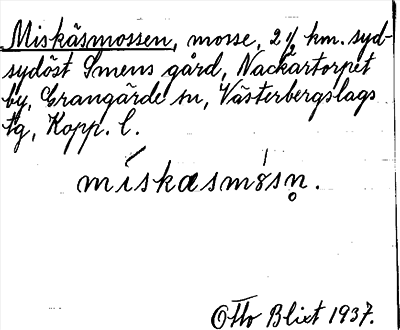 Miskäsmossen, mosse, 2 ½ km. syd-
sydöst Smens gård, Nackartorpet
by, Grangärde sn, Västerbergslags
tg, Kopp. l.
mískæsmòsn̥.
Otto Blixt 1937.